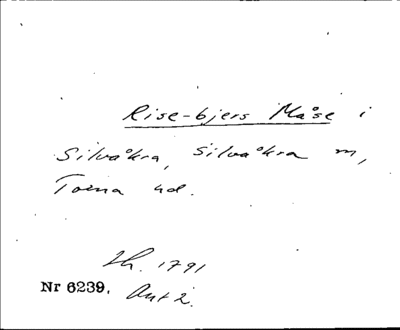 Rise-bjers Måse i
Silvåkra, Silvåkra m,
Torna hd.
Lh. 1791
Nr 6239. Akt 2.